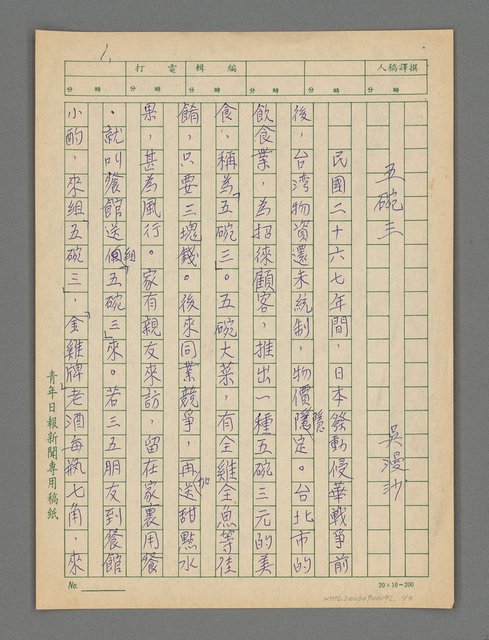 1.
人稿譯撰
編輯
電打
時 分 時 分 時 分 時 分
五碗三 吳漫沙
民國二十六七年間，日本發動侵華戰爭前
後，台湾物資還未統制，物價隱定。台北市的
飲食業，為招徠顧客，推出一種五碗三元的美
食，稱為「五碗三」。五碗大菜，有全雞全魚等佳
餚，只要三塊錢。後來同業競爭，再加送甜點水
果，甚為風行。家有親友來訪，留在家裏用餐
。就叫餐館送組「五碗三」來。若三五朋友到餐館
小酌，來組「五碗三」，「金雞牌」老酒每瓶七角，來
青年日報新聞專用稿紙
No.
20×10=200
NMTL20060900042 1/3